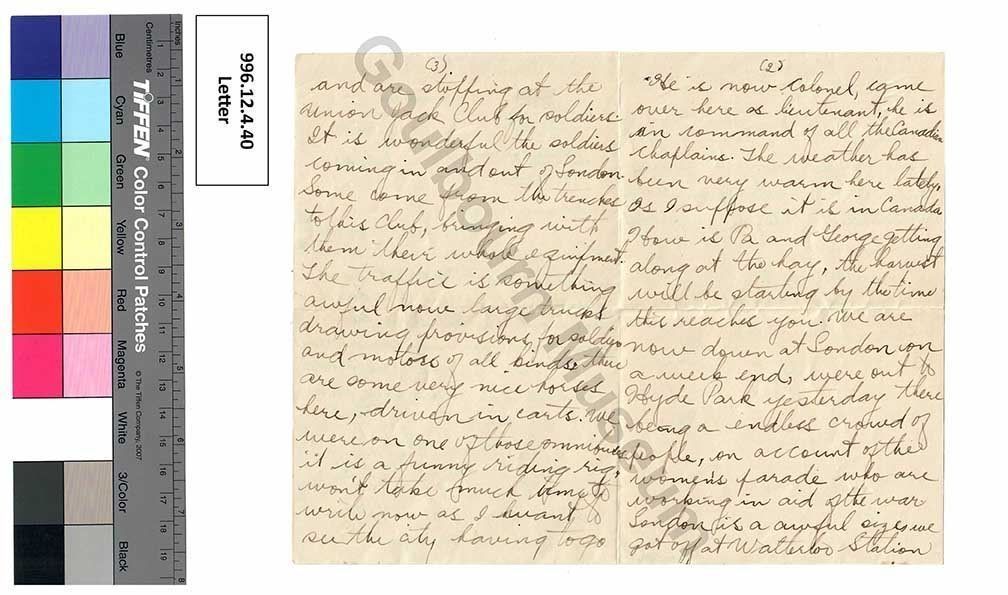 996.12.4.40
Letter
Inches
Centimetres
TIFFEN Color Control Patches
© The Tiffen Company, 2007
Blue
Cyan
Green
Yellow
Red
Magenta
White
3/Color
Black
Goulbourn Museum
(2)
He is now Colonel, came
over here as lieutenant, he is
in command of all the Canadian
chaplains. The weather has
been very warm here lately,
as I suppose it is in Canada
How is Pa and George getting
along at the hay, the harvest
will be starting by the time
this reaches you. We are
now down at London on
a week end, were out to
Hyde Park yesterday there
being a endless crowd of
people, on account of the
women's parade who are
working in aid of the war
London is a awful size, we
got off at Watterloo Station
(3)
and are stopping at the
Union Jack Club for soldiers.
It is wonderful the soldiers
coming in and out of London.
Some come from the trenches
to this Club, bringing with
them their whole equipment.
The traffic is something
awful now large trucks
drawing provisions, for soldiers
and motors of all kinds, there
are some very nice horses
here, driven in carts. We
were on one of those omnibuses
it is a funny riding rig,
won't take much time to
write now as I want to
see the city having to go